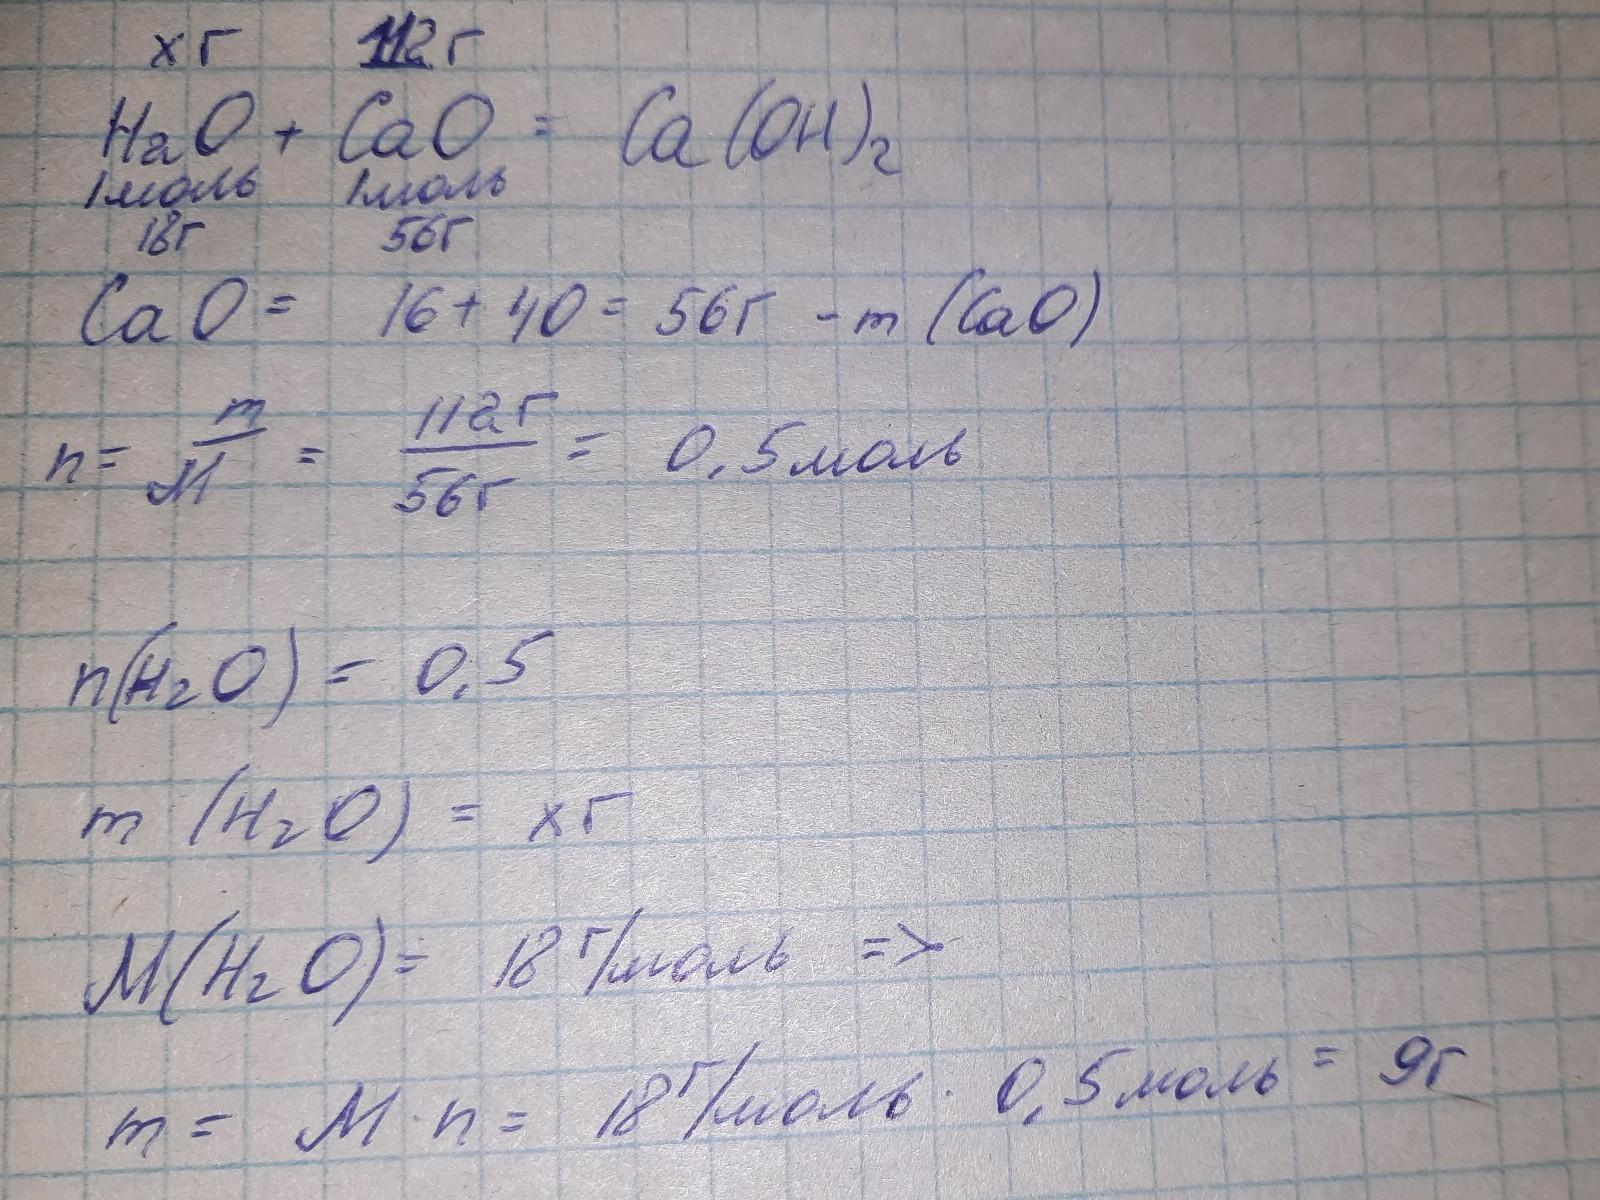 х г 112 г
H2O + CaO = Ca(OH)2
1моль 1моль
18г 56г
CaO = 16 + 40 = 56г - m (CaO)
n = m/M = 112г/56г = 0,5 моль
n(H2O) = 0,5
m (H2O) = х г
M(H2O) = 18 г/моль =>
m = M · n = 18 г/моль · 0,5 моль = 9г